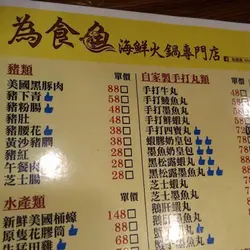 為食魚 海鮮火鍋專門店
豬類 單價
美國黑豚肉 88
豬下青 58
豬粉腸 48
豬肚 48
豬腰花 38
黃沙豬膶 38
豬紅 28
午餐肉 28
芝士腸 28
水產類 單價
新鮮美國桶蠔 148
原隻花膠筒 88
生猛田雞 68
自家製手打丸類 單
手打牛丸
手打鯪魚丸
手打墨魚丸
手打鮮蝦丸
手打四寶丸
蝦膠奶皇包
墨魚奶皇包
黑松露蝦丸
黑松露墨魚丸
芝士蝦丸
芝士墨魚丸
鵝肝蝦丸
鵝肝墨魚丸